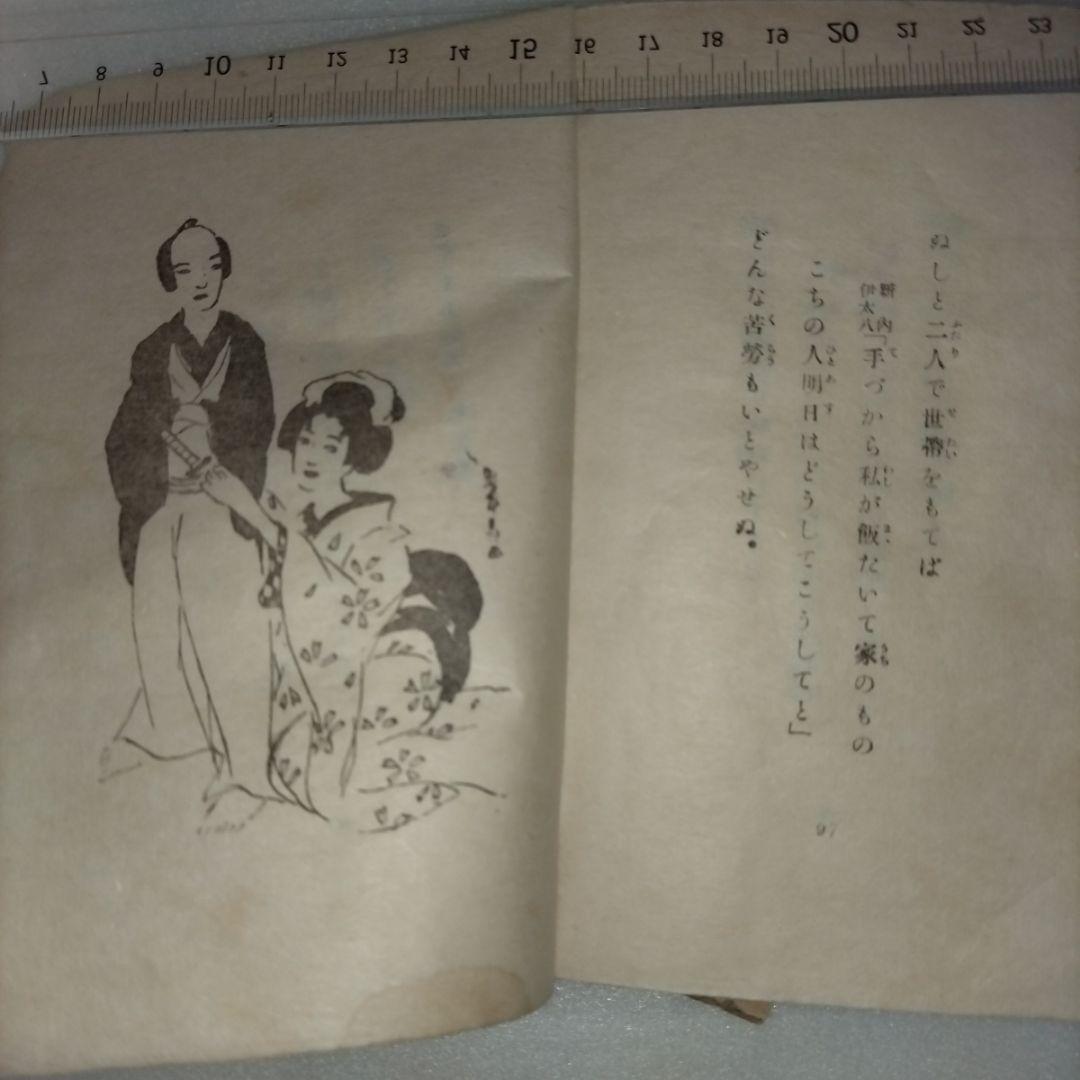 7 8 9 10 11 12 13 14 15 16 17 18 19 20 21 22 23
ぬしと二人で世帯をもてば
新内
伊太八
「手づから私が飯たいて家のもの
こちの人明日はどうしてこうしてと」
どんな苦勞もいとやせぬ。
97